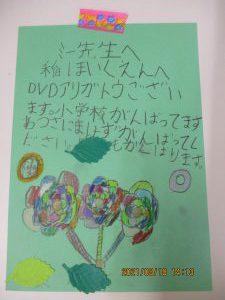 ミー先生へ
稲ほいくえんへ
DVDアリガトウござい
ます。小学校がんばってます
あつさにまけずがんばってく
ださい もがんばります。
2021/08/18 14:13